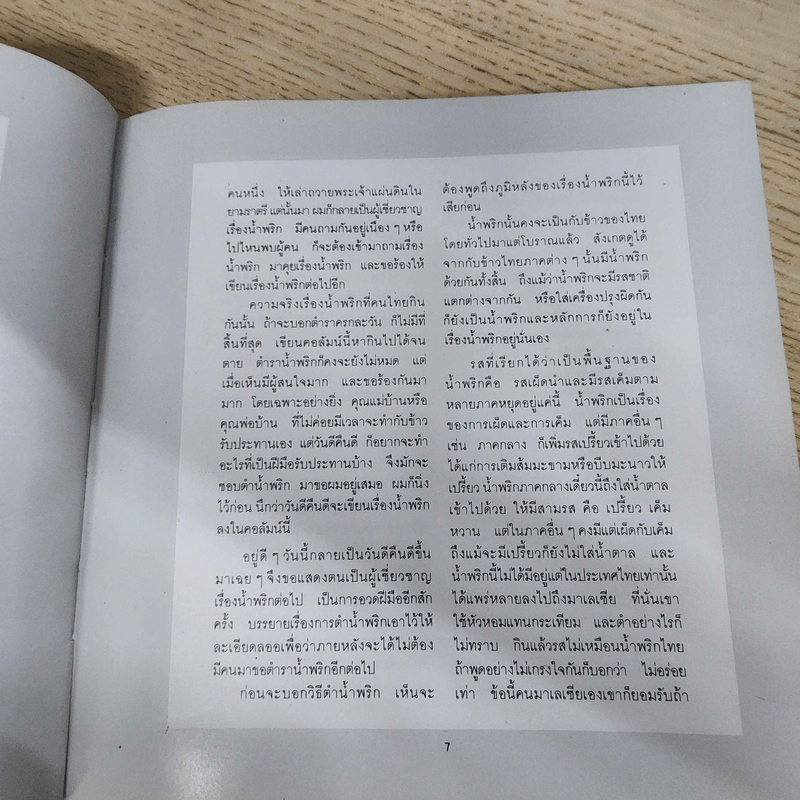 คนหนึ่ง ให้เล่าถวายพระเจ้าแผ่นดินใน
ยามราตรี แต่นั้นมา ผมก็กลายเป็นผู้เชี่ยวชาญ
เรื่องน้ำพริก มีคนถามกันอยู่เนือง ๆ หรือ
ไปไหนพบผู้คน ก็จะต้องเข้ามาถามเรื่อง
น้ำพริก มาคุยเรื่องน้ำพริก และขอร้องให้
เขียนเรื่องน้ำพริกต่อไปอีก
ความจริงเรื่องน้ำพริกที่คนไทยกิน
กันนั้น ถ้าจะบอกตำราครกละวัน ก็ไม่มีที่
สิ้นที่สุด เขียนคอลัมน์นี้หากินไปได้จน
ตาย ตำราน้ำพริกก็คงจะยังไม่หมด แต่
เมื่อเห็นมีผู้สนใจมาก และขอร้องกันมา
มาก โดยเฉพาะอย่างยิ่ง คุณแม่บ้านหรือ
คุณพ่อบ้าน ที่ไม่ค่อยมีเวลาจะทำกับข้าว
รับประทานเอง แต่วันดีคืนดี ก็อยากจะทำ
อะไรที่เป็นฝีมือรับประทานบ้าง จึงมักจะ
ชอบตำน้ำพริก มาขอผมอยู่เสมอ ผมก็นิ่ง
ไว้ก่อน นึกว่าวันดีคืนดีจะเขียนเรื่องน้ำพริก
ลงในคอลัมน์นี้
อยู่ดี ๆ วันนี้กลายเป็นวันดีคืนดีขึ้น
มาเฉย ๆ จึงขอแสดงตนเป็นผู้เชี่ยวชาญ
เรื่องน้ำพริกต่อไป เป็นการอวดฝีมืออีกสัก
ครั้ง บรรยายเรื่องการตำน้ำพริกเอาไว้ให้
ละเอียดลออเพื่อว่าภายหลังจะได้ไม่ต้อง
มีคนมาขอตำราน้ำพริกอีกต่อไป
ก่อนจะบอกวิธีตำน้ำพริก เห็นจะ
ต้องพูดถึงภูมิหลังของเรื่องน้ำพริกนี้ไว้
เสียก่อน
น้ำพริกนั้นคงจะเป็นกับข้าวของไทย
โดยทั่วไปมาแต่โบราณแล้ว สังเกตดูได้
จากกับข้าวไทยภาคต่าง ๆ นั้นมีน้ำพริก
ด้วยกันทั้งสิ้น ถึงแม้ว่าน้ำพริกจะมีรสชาติ
แตกต่างจากกัน หรือใส่เครื่องปรุงผิดกัน
ก็ยังเป็นน้ำพริกและหลักการก็ยังอยู่ใน
เรื่องน้ำพริกอยู่นั่นเอง
รสที่เรียกได้ว่าเป็นพื้นฐานของ
น้ำพริกคือ รสเผ็ดนำและมีรสเค็มตาม
หลายภาคหยุดอยู่แค่นี้ น้ำพริกเป็นเรื่อง
ของการเผ็ดและการเค็ม แต่มีภาคอื่น ๆ
เช่น ภาคกลาง ก็เพิ่มรสเปรี้ยวเข้าไปด้วย
ได้แก่การเติมส้มมะขามหรือบีบมะนาวให้
เปรี้ยว น้ำพริกภาคกลางเดี๋ยวนี้ถึงใส่น้ำตาล
เข้าไปด้วย ให้มีสามรส คือ เปรี้ยว เค็ม
หวาน แต่ในภาคอื่น ๆ คงมีแต่เผ็ดกับเค็ม
ถึงแม้จะมีเปรี้ยวก็ยังไม่ใส่น้ำตาล และ
น้ำพริกนี้ไม่ได้มีอยู่แต่ในประเทศไทยเท่านั้น
ได้แพร่หลายลงไปถึงมาเลเซีย ที่นั่นเขา
ใช้หัวหอมแทนกระเทียม และตำอย่างไรก็
ไม่ทราบ กินแล้วรสไม่เหมือนน้ำพริกไทย
ถ้าพูดอย่างไม่เกรงใจกันก็บอกว่า ไม่อร่อย
เท่า ข้อนี้คนมาเลเซียเองเขาก็ยอมรับถ้า
7